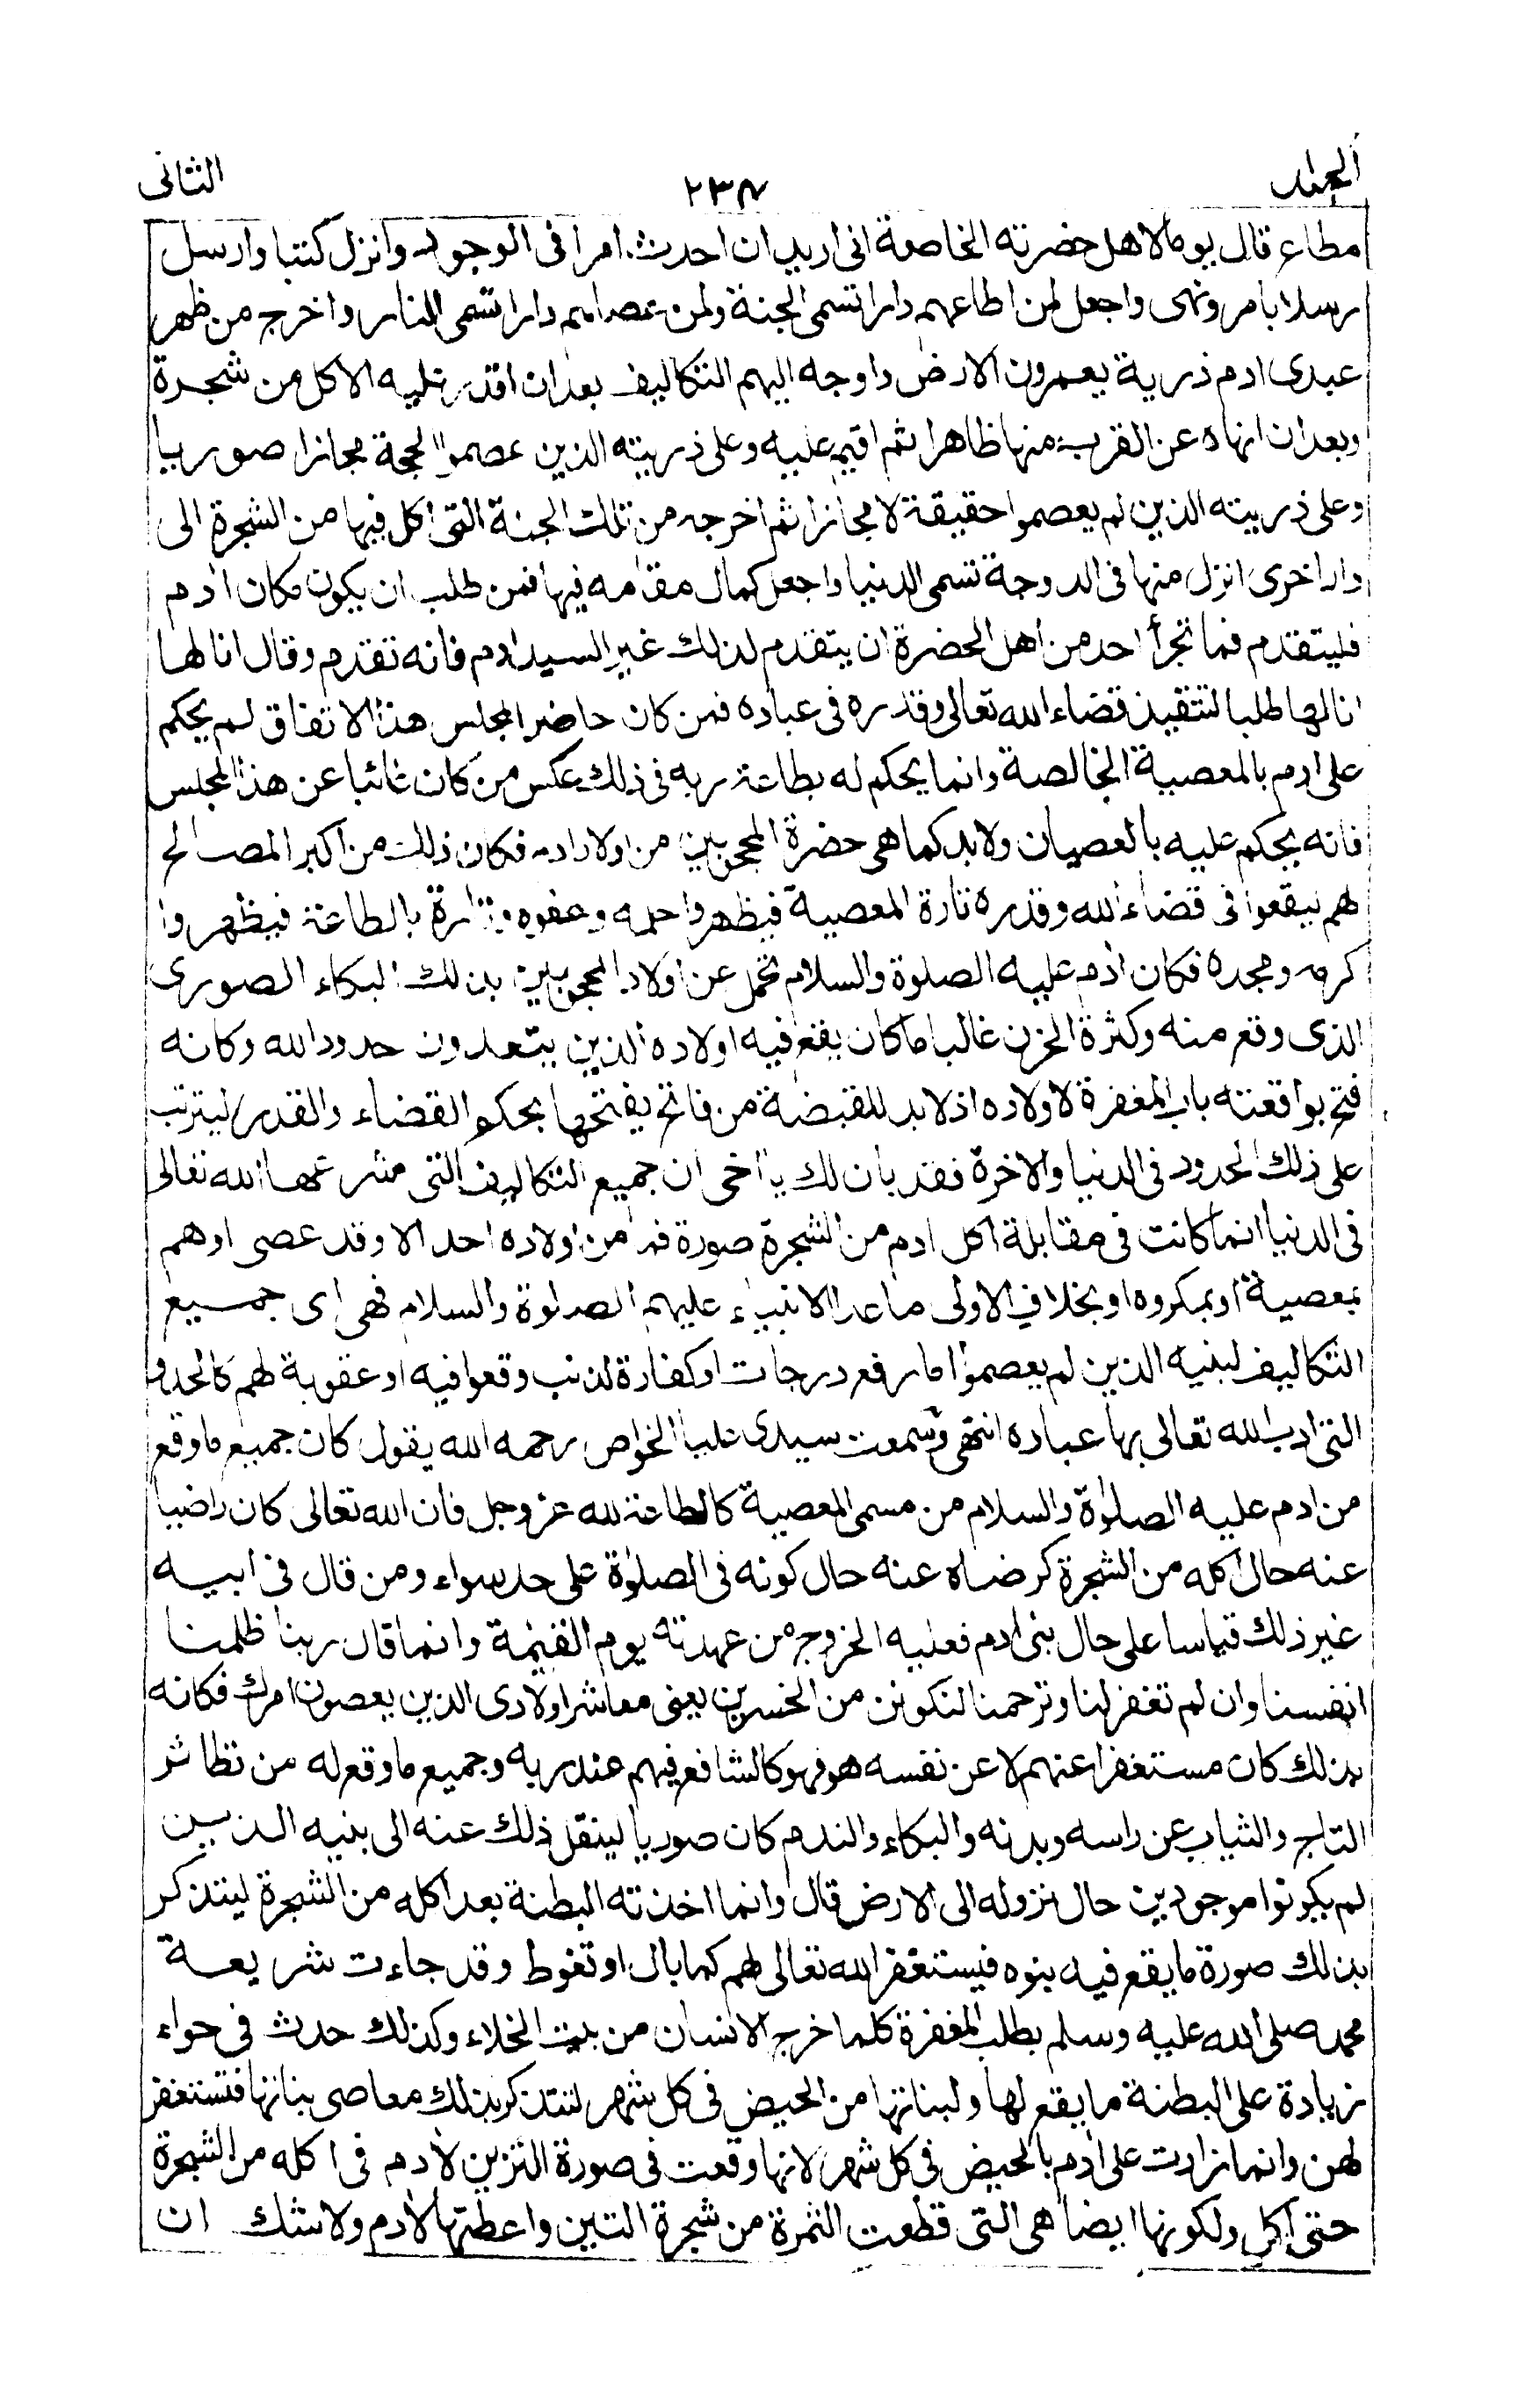 الجلد ٢٣٨ الثانى
مطاع قال يوما لاهل حضرته الخاصة انى اريد ان احدث امرا فى الوجود وانزل كتبا وارسل
رسلا بامر ونهى واجعل لمن اطاعهم دارا تسمى الجنة ولمن عصاهم دارا تسمى النار واخرج من ظهر
عبدى ادم ذرية يعمرون الارض واوجه اليهم التكاليف بعد ان اقدر عليه الاكل من شجرة
وبعد ان انهاه عن القرب منها ظاهرا ثم اقيم عليه وعلى ذريته الذين عصموا الحجة مجازا صوريا
وعلى ذريته الذين لم يعصموا حقيقة لا مجازا ثم اخرجه من تلك الجنة التى اكل فيها من الشجرة الى
دار اخرى انزل منها فى الدرجة تسمى الدنيا واجعل كمال مقامه فيها فمن طلب ان يكون مكان ادم
فليتقدم فما تجرأ احد من اهل الحضرة ان يتقدم لذلك غير السيد ادم فانه تقدم وقال انا لها
انا لها طلبا لتنفيذ قضاء الله تعالى وقدره فى عباده فمن كان حاضر المجلس هذا الاتفاق لم يحكم
على ادم بالمعصية الخالصة وانما يحكم له بطاعة ربه فى ذلك عكس من كان غائبا عن هذا المجلس
فانه يحكم عليه بالعصيان ولابد كما هى حضرة المحجوبين من اولاد ادم فكان ذلك من اكبر المصالح
لهم ليقعوا فى قضاء الله وقدره تارة المعصية فيظهروا حلمه وعفوه وتارة بالطاعة فيظهروا
كرمه ومجده فكان ادم عليه الصلوة والسلام تحمل عن اولاد المحجوبين بذلك البكاء الصورى
الذى وقع منه وكثرة الحزن غالبا ما كان يقع فيه اولاده الذين يتعدون حدود الله وكانه
فتح بواقعته باب المغفرة لاولاده اذ لابد للقبضة من فاتح يفتحها بحكم القضاء والقدر ليترتب
على ذلك الحدود فى الدنيا والاخرة فقد بان لك يا اخى ان جميع التكاليف التى شرعها الله تعالى
فى الدنيا انما كانت فى مقابلة اكل ادم من الشجرة صورة فما من اولاده احد الا وقد عصى اوهم
بمعصية او بمكروه او بخلاف الاولى ما عدا الانبياء عليهم الصلوة والسلام فهى اى جميع
التكاليف لبنيه الذين لم يعصموا اما رفع درجات او كفارة لذنب وقعوا فيه او عقوبة لهم كالحدود
التى ادب الله تعالى بها عباده انتهى وسمعت سيدى عليا الخواص رحمه الله يقول كان جميع ما وقع
من ادم عليه الصلوة والسلام من مسمى المعصية كالطاعة لله عز وجل فان الله تعالى كان راضيا
عنه حال اكله من الشجرة كرضاه عنه حال كونه فى الصلوة على حد سواء ومن قال فى ابيه
غير ذلك قياسا على حال بنى ادم فعليه الخروج من عهدته يوم القيمة وانما قال ربنا ظلمنا
انفسنا وان لم تغفر لنا وترحمنا لنكونن من الخسرين يعنى معاشر اولادى الذين يعصون امرك فكانه
بذلك كان مستغفرا عنهم لا عن نفسه هو فهو كالشافع فيهم عند ربه وجميع ما وقع له من تطائر
التاج والثياب عن راسه وبدنه والبكاء والندم كان صوريا لينقل ذلك عنه الى بنيه الذين
لم يكونوا موجودين حال نزوله الى الارض قال وانما اخذته البطنة بعد اكله من الشجرة ليتذكر
بذلك صورة ما يقع فيه بنوه فيستغفر الله تعالى لهم كلما بال او تغوط وقد جاءت شريعة
محمد صلى الله عليه وسلم بطلب المغفرة كلما خرج الانسان من بيت الخلاء وكذلك حدث فى حواء
زيادة على البطنة ما يقع لها ولبناتها من الحيض فى كل شهر لتتذكر بذلك معاصى بناتها فتستغفر
لهن وانما زادت على ادم بالحيض فى كل شهر لانها وقعت فى صورة التزين لادم فى اكله من الشجرة
حتى اكل ولكونها ايضا هى التى قطعت الثمرة من شجرة التين واعطتها لادم ولاشك ان